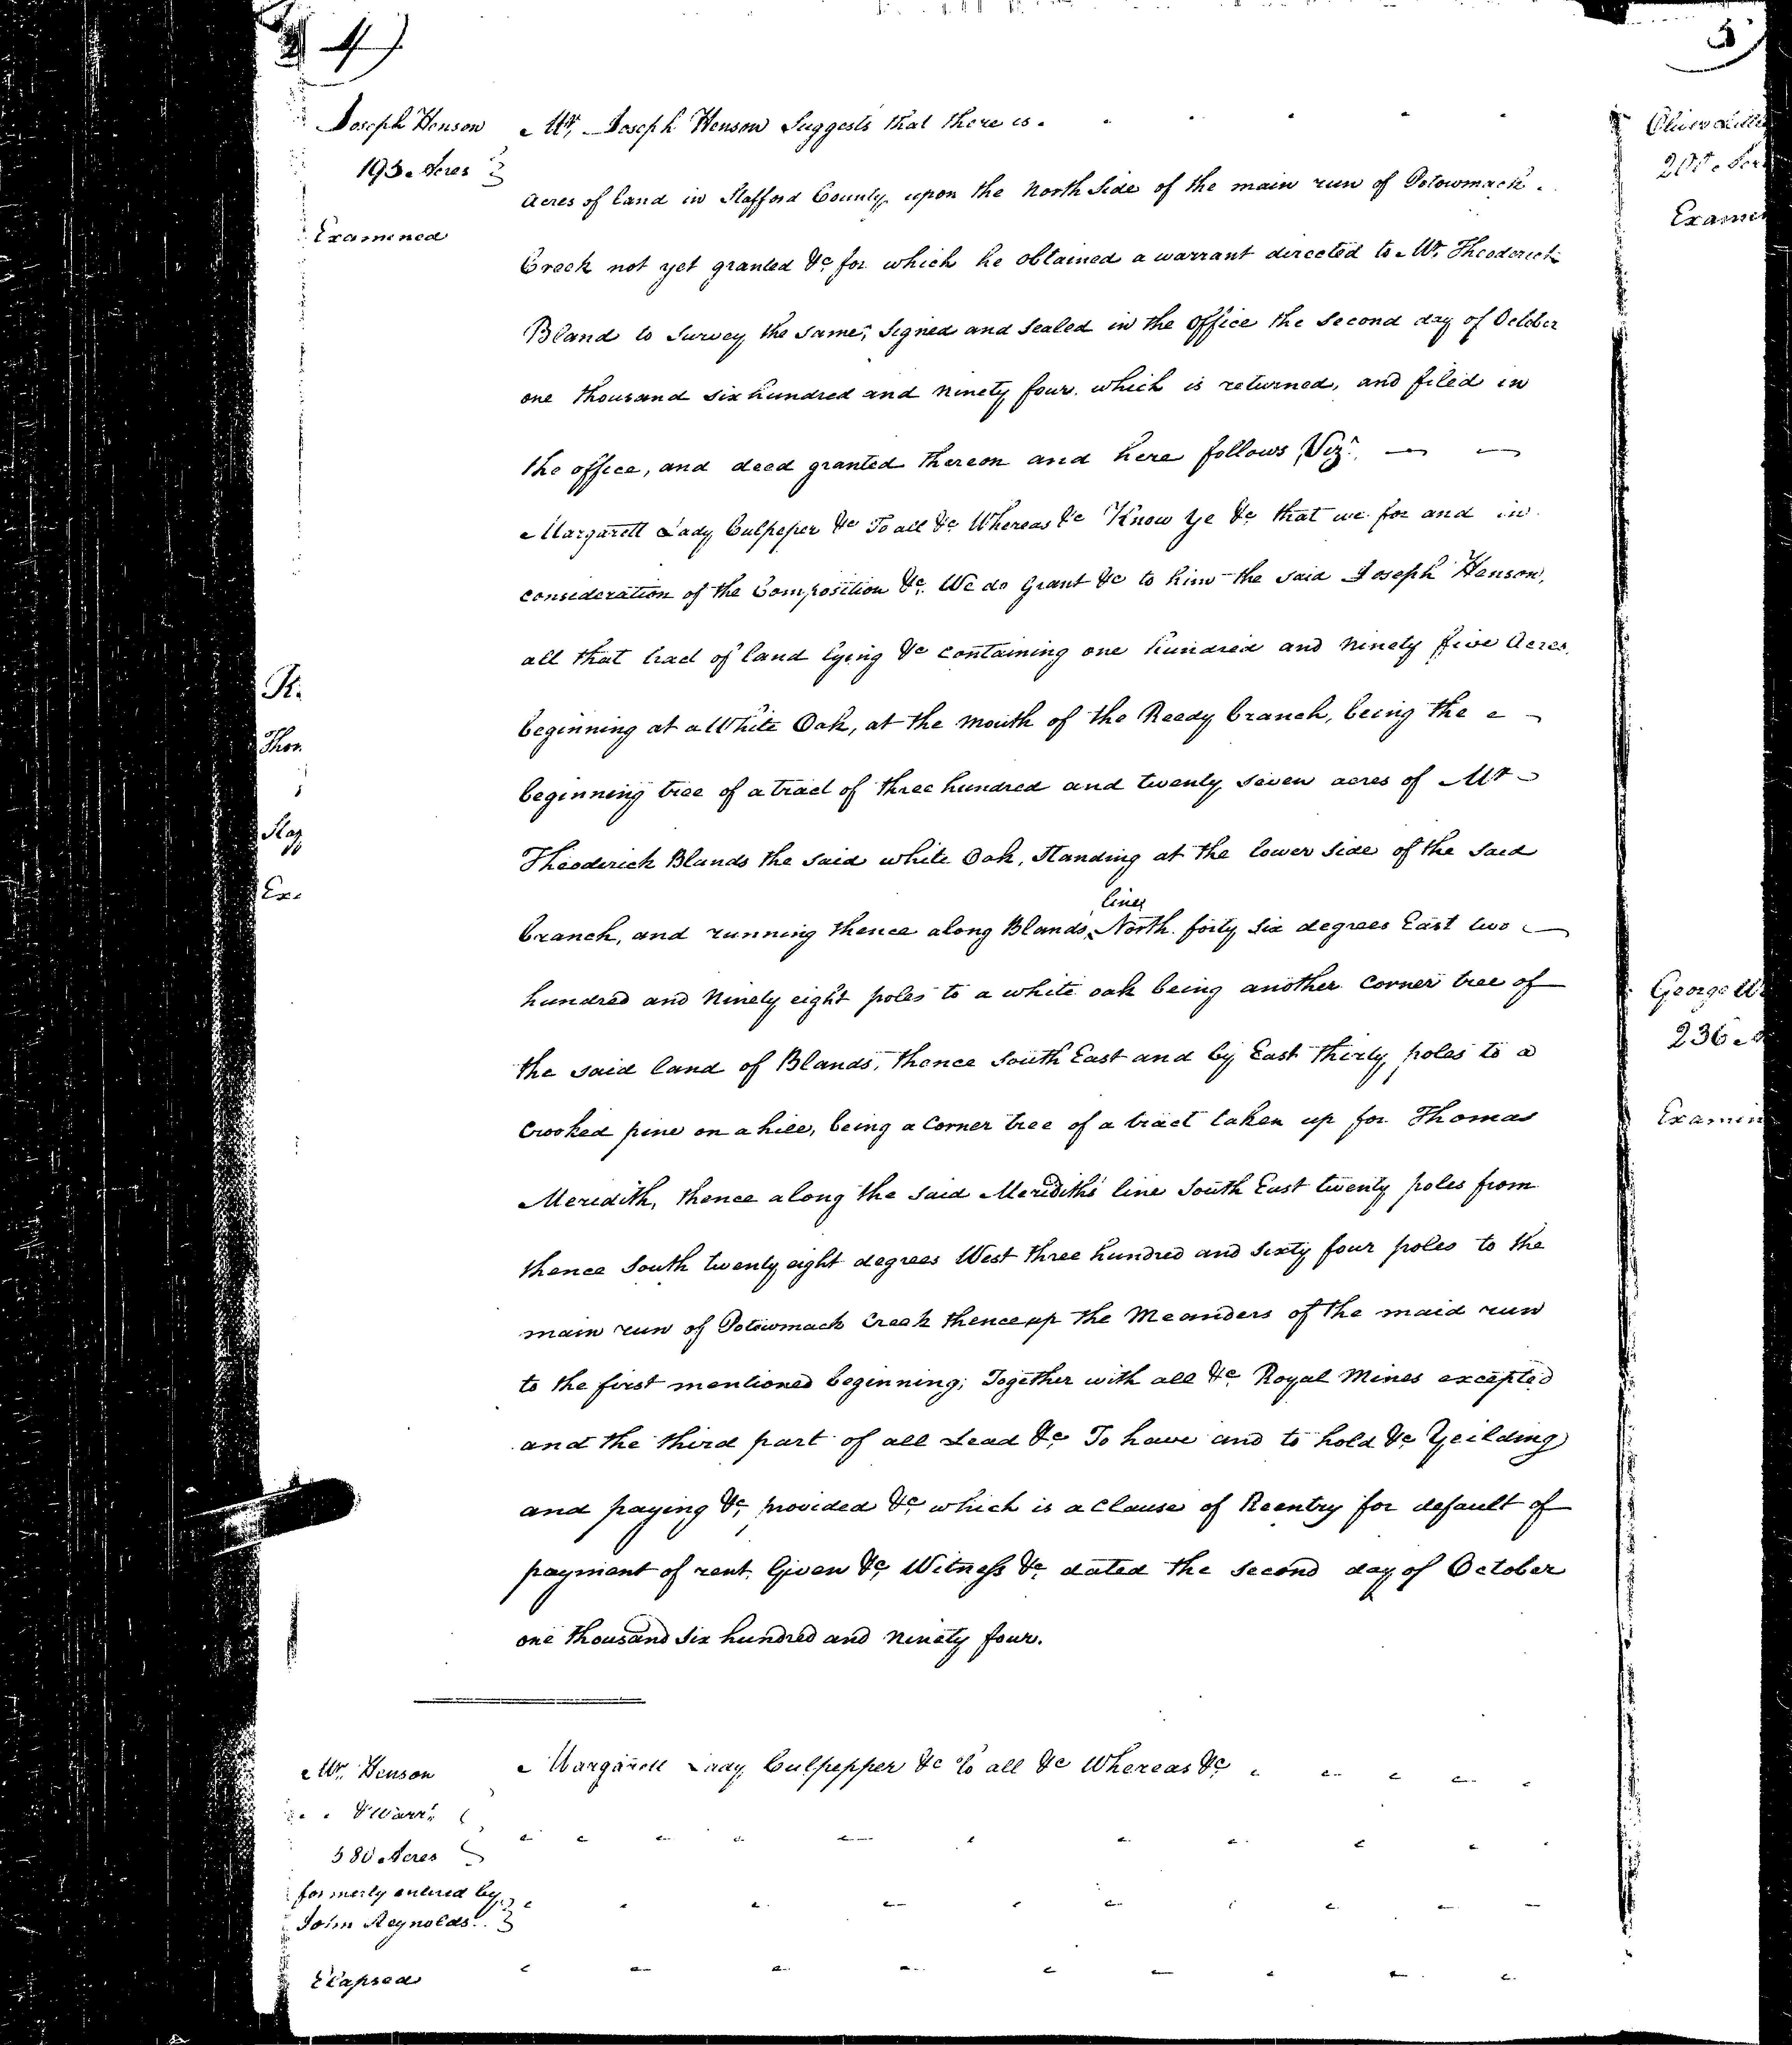 4)
Joseph Henson
195 Acres
Examined
Mr. Joseph Henson Suggests that there is
acres of land in Stafford County, upon the North Side of the main run of Potowmack
Creek not yet granted &c for which he obtained a warrant directed to Mr. Theoderick
Bland to Survey the same, Signed and Sealed in the office the Second day of October
one thousand six hundred and ninety four. which is returned, and filed in
the office, and deed granted thereon and here follows Vizt.
Margarett Lady Culpeper &c To all &c Whereas &c Know Ye &c that we for and in
consideration of the Composition &c. We do Grant &c to him the said Joseph Henson,
all that tract of land lying &c containing one hundred and ninety five Acres,
beginning at a White Oak, at the mouth of the Reedy branch, being the
beginning tree of a tract of three hundred and twenty seven acres of Mr
Theoderick Blands the said white Oak, Standing at the lower Side of the Said
branch, and running thence along Blands lines North forty Six degrees East two
hundred and Ninety eight poles to a white oak being another corner tree of
the said land of Blands, thence South East and by East thirty poles to a
Crooked pine on a hill, being a Corner tree of a tract taken up for Thomas
Meredith, thence along the said Merediths line South East twenty poles from
thence South twenty eight degrees West three hundred and Sixty four poles to the
main run of Potowmack Creek thence up the Meanders of the maid run
to the first mentioned beginning; Together with all &c Royal Mines excepted
and the third part of all Lead &c To have and to hold &c Yeilding
and paying &c, provided &c which is a Clause of Reentry for default of
payment of rent. Given &c, Witness &c dated the Second day of October
one thousand Six hundred and ninety four.
Mr. Henson
Warrt.
580 Acres
formerly entered by
John Reynolds
Elapsed
Margarett Lady Culpepper &c To all &c Whereas &c
5
Examin
George
236
Examin